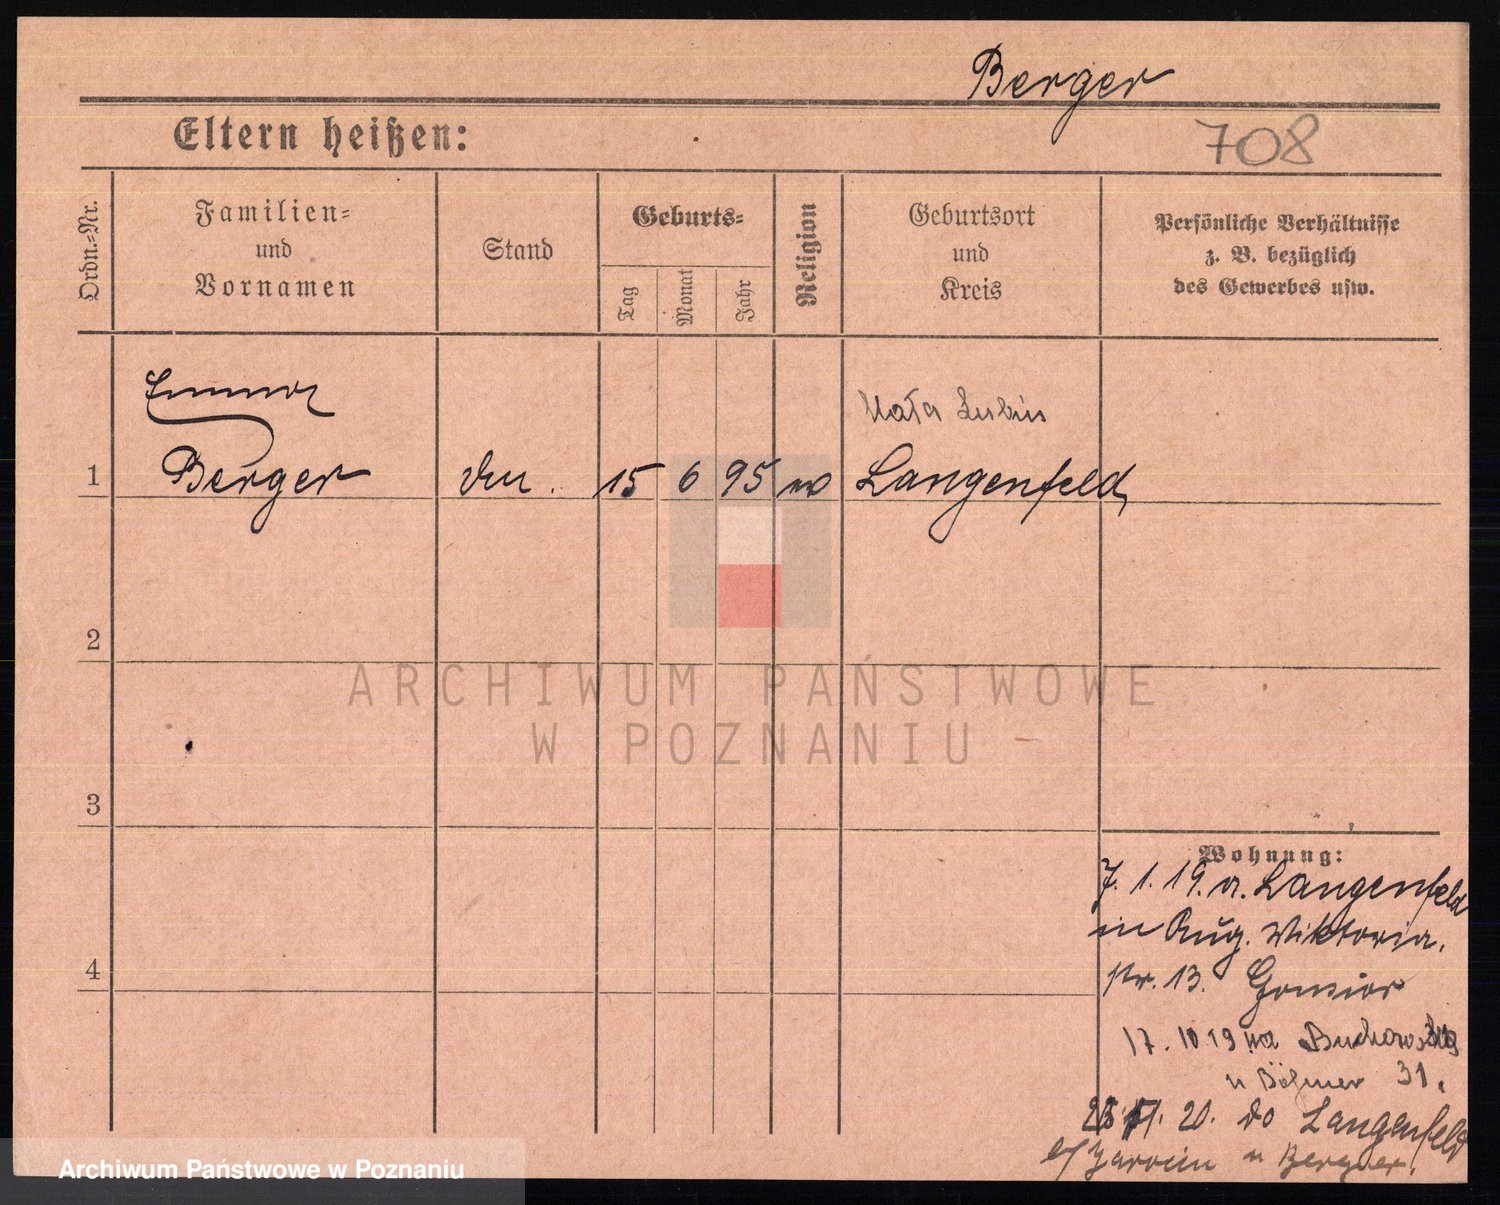 Berger
Eltern heißen:
708
Ordn.=Nr.
Familien=
und
Vornamen
Stand
Geburts=
Tag
Monat
Jahr
Religion
Geburtsort
und
Kreis
Persönliche Verhältnisse
z. B. bezüglich
des Gewerbes usw.
Emma
Mała Lubin
1
Berger
15 6 95
Langenfeld
2
ARCHIWUM PAŃSTWOWE
W POZNANIU
3
Wohnung:
7.1.19. a. Langenfeld
in Aug. Viktoria.
4
str. 13. Gonsior
17.10 19 na Bukowska
u Böhmer 31.
20. do Langenfeld
Jarocin u Berger.
Archiwum Państwowe w Poznaniu